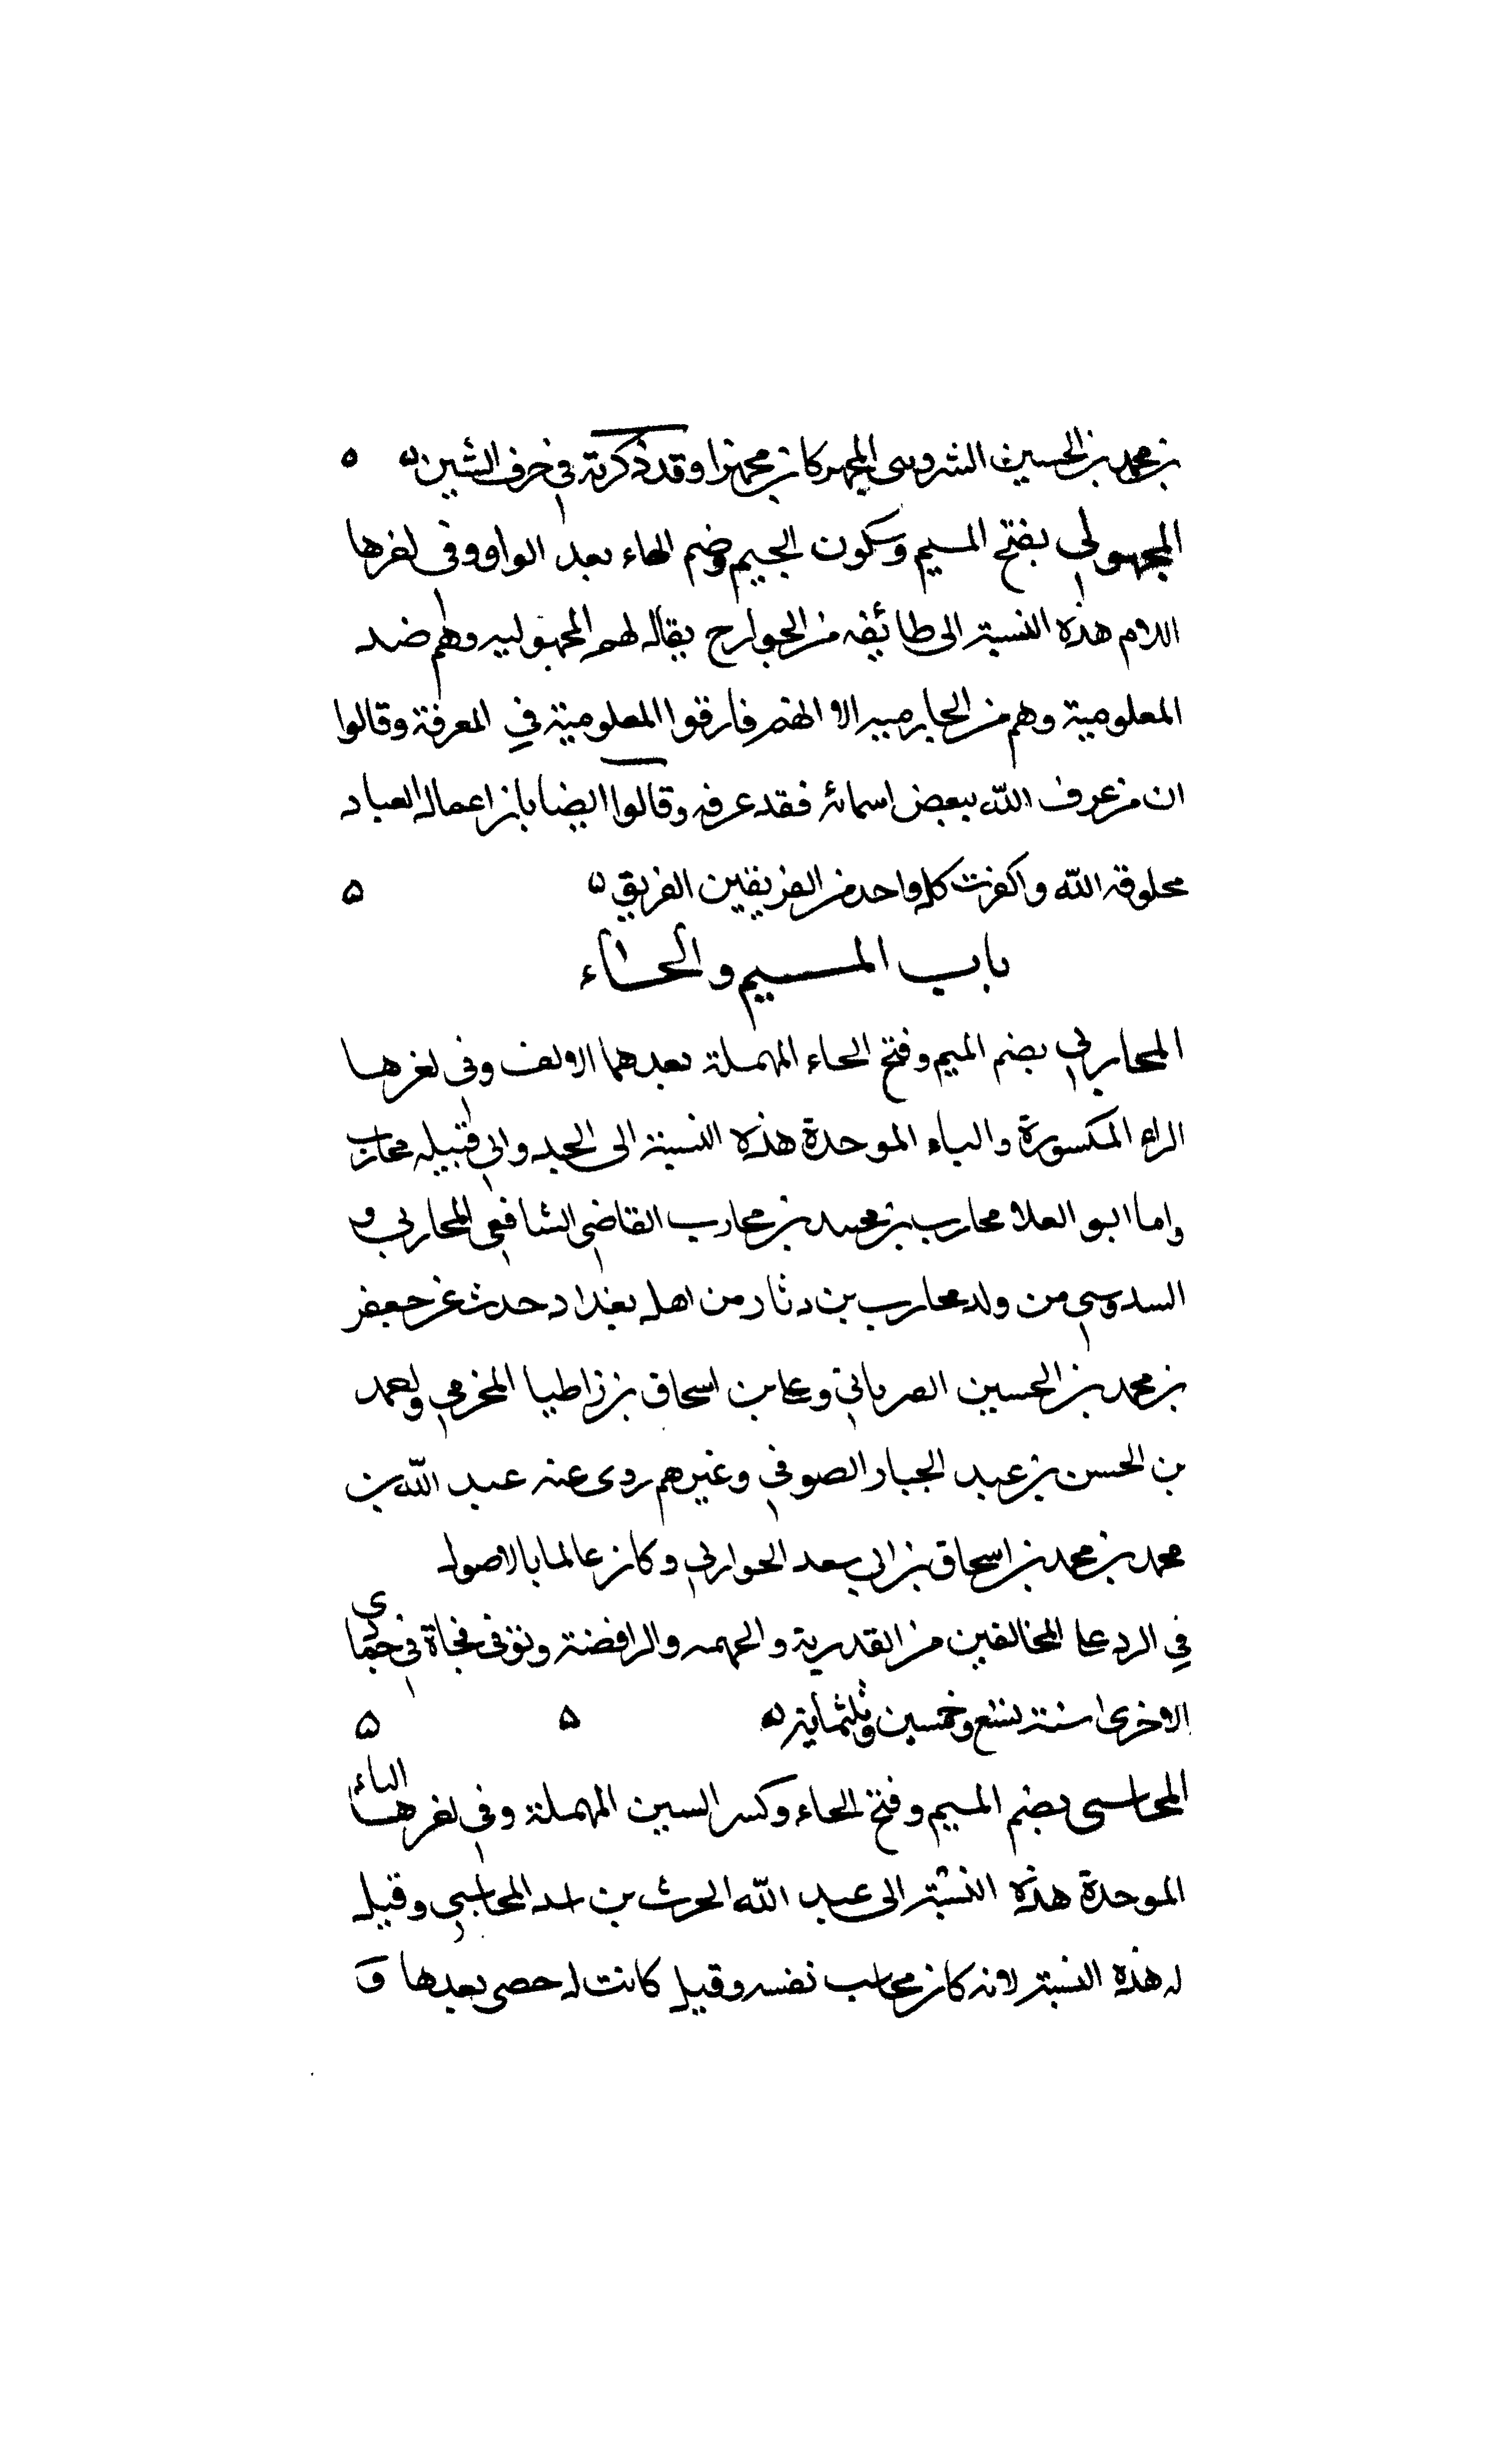 بن محمد بن الحسين الشروسى المجهر كان مجهزا وقد ذكرته في حرف الشين ٥ ٥
المجهولي بفتح الميم وسكون الجيم وضم الهاء بعد الواو وفى اخرها
اللام هذه النسبة الى طائفه من الخوارج يقال لهم المجهوليه وهم ضد
المعلومية وهم من الحازميه الا انهم فارقوا المعلومية في المعرفة وقالوا
ان من عرف الله ببعض اسمائه فقد عرفه وقالوا ايضا بان اعمال العباد
مخلوقه الله واكفرت كل واحد من الفريقين الفريق ٥ ٥
باب الميم والحاء
المحاربي بضم الميم وفتح الحاء المهملة بعدهما الالف وفى اخرها
الراء المكسورة والباء الموحدة هذه النسبة الى الجد والى قبيله محارب
واما ابو العلا محارب بن محمد بن محارب القاضي الشافعي المحاربي و
السدوسي من ولد محارب بن دثار من اهل بغداد حدث عن جعفر
بن محمد بن الحسين الفرياني وعلى بن اسحاق بن زاطيا المخرمي واحمد
بن الحسن بن عبد الجبار الصوفي وغيرهم روى عنه عبد الله بن
محمد بن محمد بن اسحاق بن ابي سعد الحواربي وكان عالما بالاصول
في الرد على المخالفين من القدرية والجهمه والرافضة وتوفى فجاة في جمادى
الاخرى سنة تسع وخمسين وثلثماية ٥ ٥ ٥
المحاسبى بضم الميم وفتح الحاء وكسر السين المهملة وفى اخرها الباء
الموحدة هذه النسبة الى عبد الله الحرث بن اسد المحاسبي وقيل
له هذه النسبة لانه كان محاسب نفسه وقيل كانت له حصى يعدها و